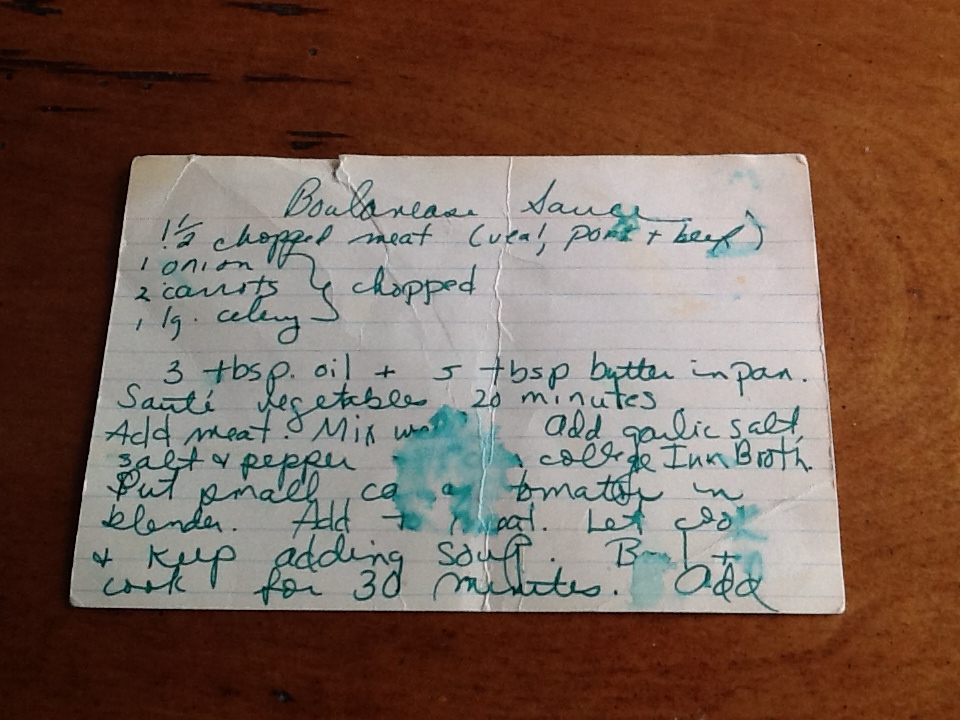 Boulanease Sauce
1 1/2 chopped meat (veal, pork + beef)
1 onion
2 carrots } chopped
1 lg. celery
3 tbsp. oil + 5 tbsp butter in pan.
Sauté vegetables 20 minutes
Add meat. Mix Add garlic salt,
salt & pepper college Inn Broth.
Put small in
blender. Add Let
& keep adding soup. +
cook for 30 minutes. Add